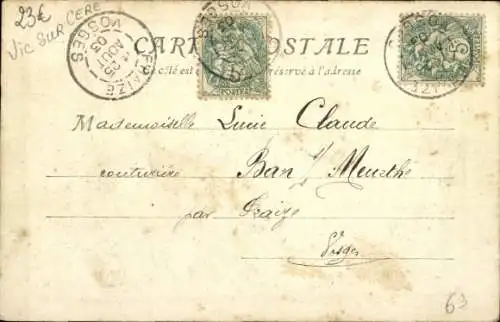 23€
VIC SUR CERE
FRAIZE
25
AOUT
03
VOSGES
CARTE POSTALE
Ce côté est réservé à l'adresse
Mademoiselle Lucie Claude
couturière Ban s/ Meurthe
par Fraize
Vosges
63